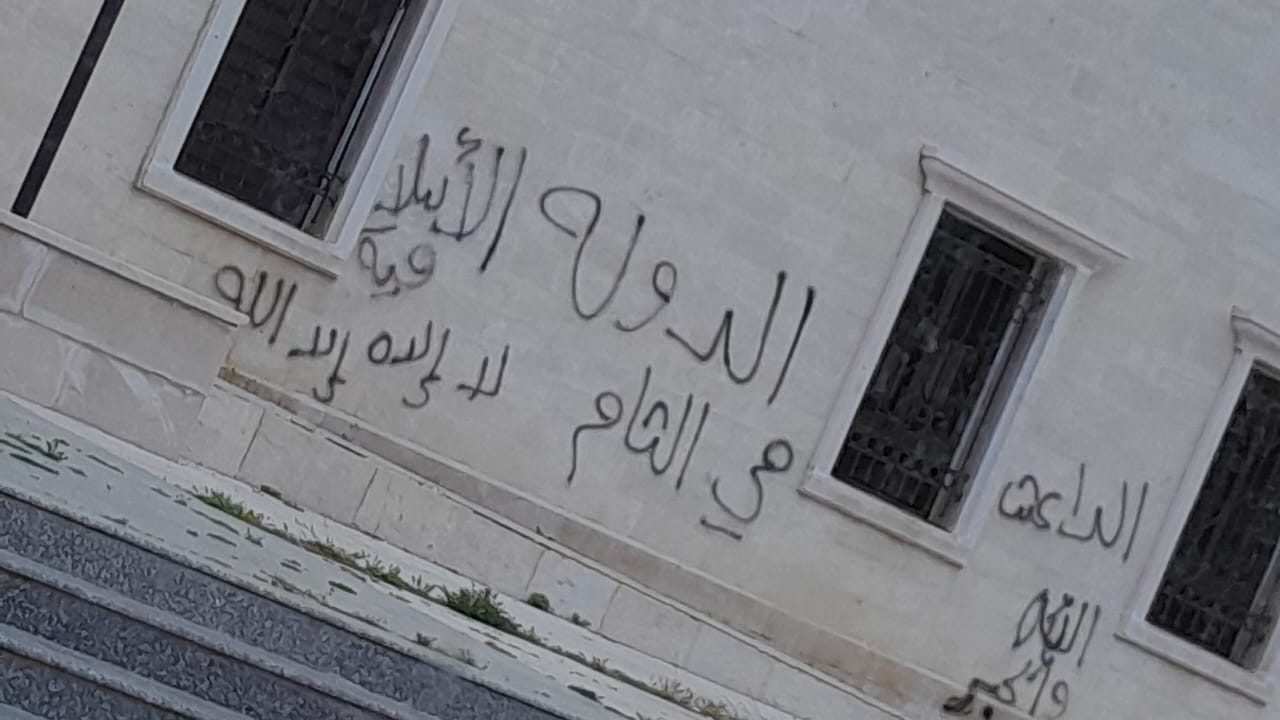 الدوله الأسلا
مية
في الشام
لا إلاه إلا الله
الداعش
الله
وأكبر